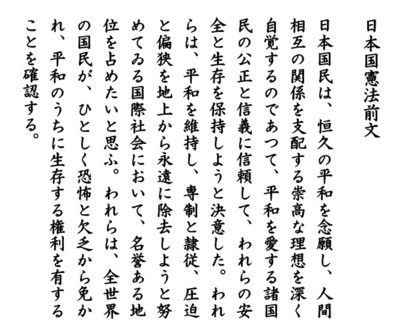 日本国憲法前文
日本国民は、恒久の平和を念願し、人間
相互の関係を支配する崇高な理想を深く
自覚するのであつて、平和を愛する諸国
民の公正と信義に信頼して、われらの安
全と生存を保持しようと決意した。われ
らは、平和を維持し、専制と隷従、圧迫
と偏狭を地上から永遠に除去しようと努
めてゐる国際社会において、名誉ある地
位を占めたいと思ふ。われらは、全世界
の国民が、ひとしく恐怖と欠乏から免か
れ、平和のうちに生存する権利を有する
ことを確認する。